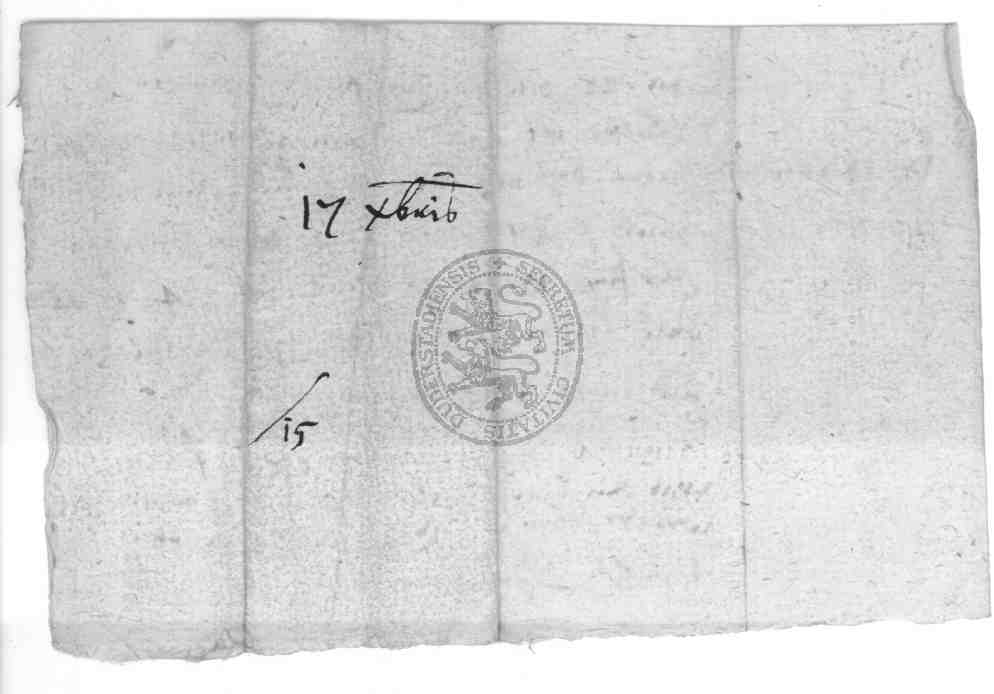 17 xbris
SECRETUM CIVITATIS DUDERSTADIENSIS
/15